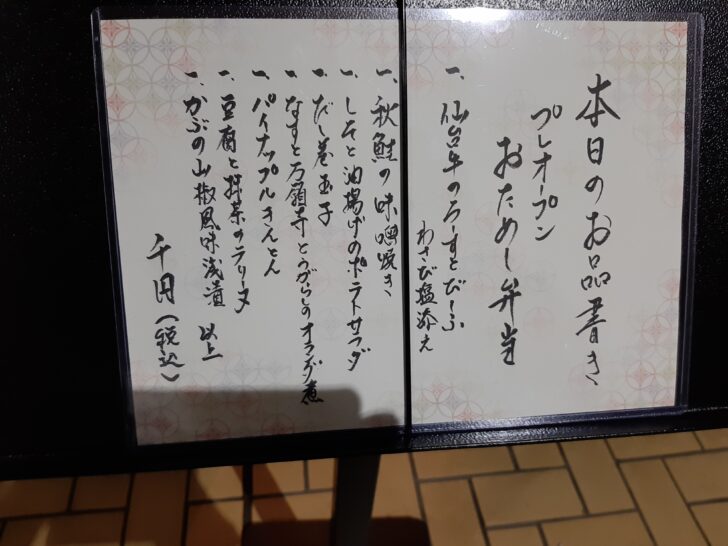 本日のお品書き
プレオープン
おためし弁当
一、仙台牛のろーすとびーふ
わさび塩添え
一、秋鮭の味噌焼き
一、しそと油揚げのポテトサラダ
一、だし巻玉子
一、なすと万願寺とうがらしのオランダ煮
一、パイナップルきんとん
一、豆腐と抹茶のテリーヌ
一、かぶの山椒風味浅漬
以上
千円(税込)